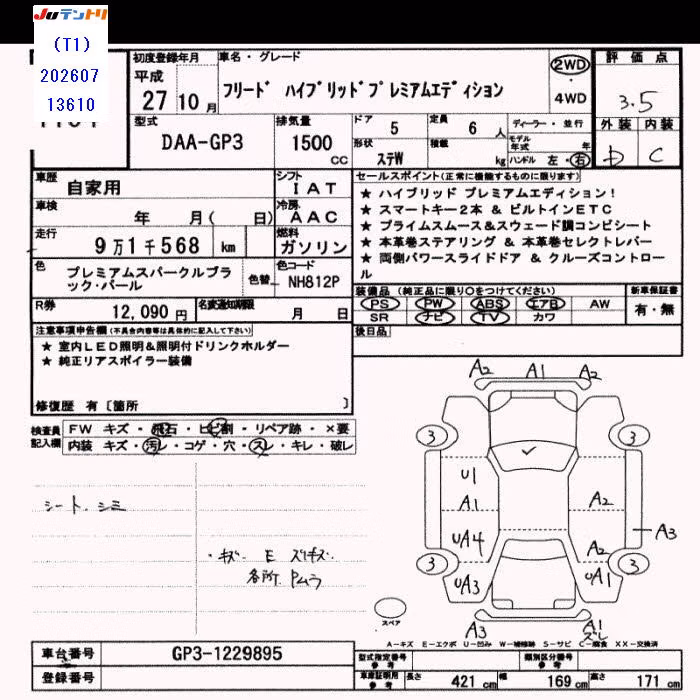 JUテントリ
(T1)
202607
13610
初度登録年月
平成
27 10 月
車名・グレード
フリード ハイブリッドプレミアムエディション
2WD
・
4WD
評価点
3.5
外装 内装
D C
型式
DAA-GP3
排気量
1500 cc
ドア 5
定員 6 人
形状 ステW
積載 kg
ディーラー・並行
モデル年式 年
ハンドル 左・右
車歴 自家用
シフト IAT
車検 年 月( 日)
冷房 AAC
走行 9万1千568 km
燃料 ガソリン
色 プレミアムスパークルブラック・パール
色替
色コード NH812P
R券 12,090 円
名変通知期限 月 日
セールスポイント(正常に機能するものに限ります)
★ ハイブリッド プレミアムエディション!
★ スマートキー2本 & ビルトインETC
★ プライムスムース&スウェード調コンビシート
★ 本革巻ステアリング & 本革巻セレクトレバー
★ 両側パワースライドドア & クルーズコントロール
装備品(純正品に限り○をつけてください)
新車保証書
PS PW ABS エアB AW
SR ナビ TV カワ
有・無
後日品
注意事項申告欄(不具合内容等は具体的に記入して下さい)
★ 室内LED照明&照明付ドリンクホルダー
★ 純正リアスポイラー装備
修復歴 有〔箇所 〕
検査員記入欄
FW キズ・飛石・ヒビ割・リペア跡・×要
内装 キズ・汚レ・コゲ・穴・スレ・キレ・破レ
シート シミ
・キズ E スリキズ
各所 Pムラ
A2 A1 A2
3 3
U1
A1 A2
UA4 A2 A3
3 3
UA3 UA1
A3 A1
スレ
スペア
A-キズ E-エクボ U-凹み W-補修跡 S-サビ C-腐食 XX-交換済
車台番号 GP3-1229895
登録番号
型式指定番号 参考
類別区分番号 参考
車庫証明用 参考
長さ 421 cm 幅 169 cm 高さ 171 cm